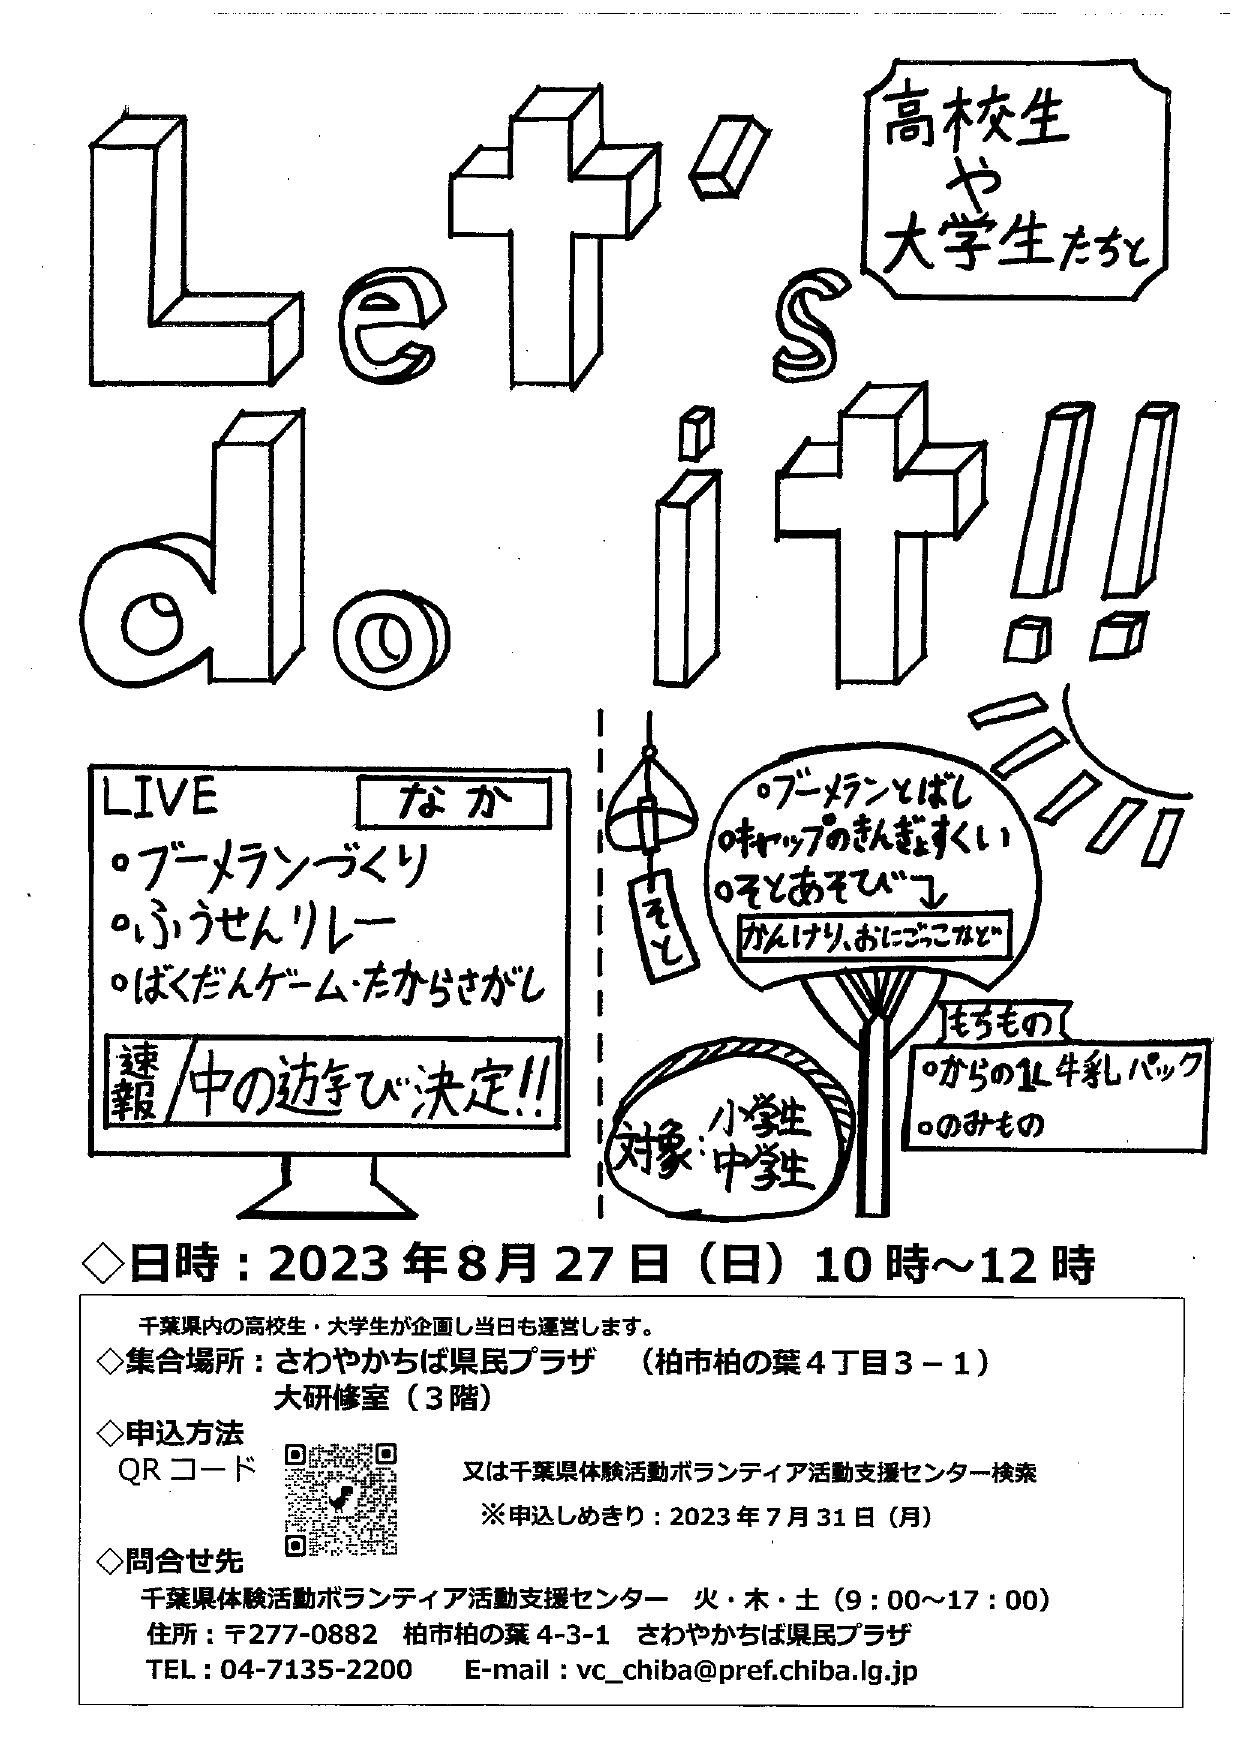 Let's
高校生
や
大学生たちと
do it!!
LIVE なか
○ブーメランづくり
○ふうせんリレー
○ばくだんゲーム・たからさがし
速報/中の遊び決定!!
そと
○ブーメランとばし
○キャップのきんぎょすくい
○そとあそび
かんけり、おにごっこなど
もちもの
○からの1L牛乳パック
○のみもの
対象:小学生
中学生
◇日時:2023年8月27日(日)10時~12時
千葉県内の高校生・大学生が企画し当日も運営します。
◇集合場所:さわやかちば県民プラザ (柏市柏の葉4丁目3-1)
大研修室(3階)
◇申込方法
QRコード
又は千葉県体験活動ボランティア活動支援センター検索
※申込しめきり:2023年7月31日(月)
◇問合せ先
千葉県体験活動ボランティア活動支援センター 火・木・土(9:00~17:00)
住所:〒277-0882 柏市柏の葉4-3-1 さわやかちば県民プラザ
TEL:04-7135-2200 E-mail:vc_chiba@pref.chiba.lg.jp